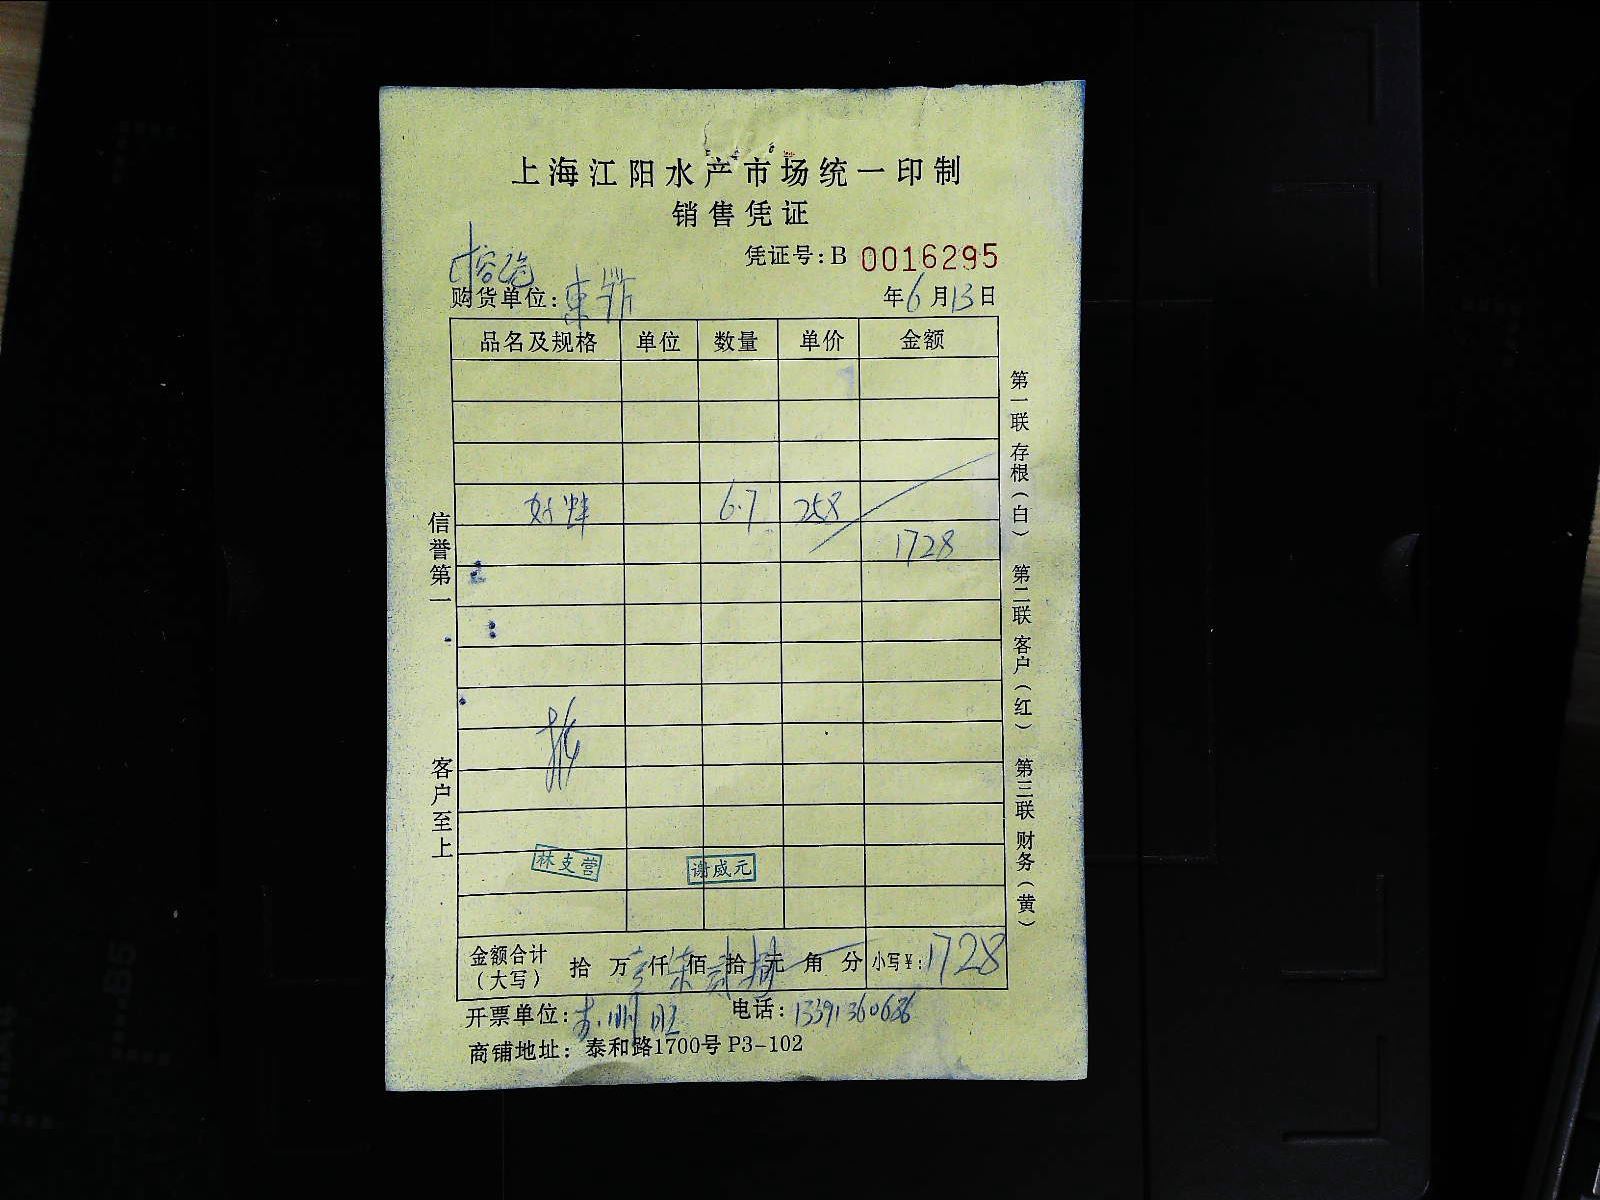 上海江阳水产市场统一印制
销售凭证
凭证号：B 0016295
购货单位：東
年6月13日
品名及规格 单位 数量 单价 金额
6.7 258
1728
林支营 谢成元
金额合计（大写） 拾 万 仟 佰 拾 元 角 分 小写¥：1728
开票单位： 电话：13391360686
商铺地址：泰和路1700号 P3-102
信誉第一
客户至上
第一联 存根（白） 第二联 客户（红） 第三联 财务（黄）